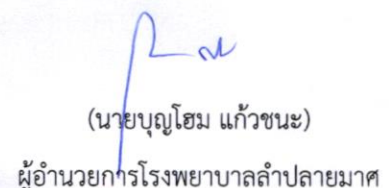 (นายบุญโฮม แก้วชนะ)
ผู้อำนวยการโรงพยาบาลลำปลายมาศ